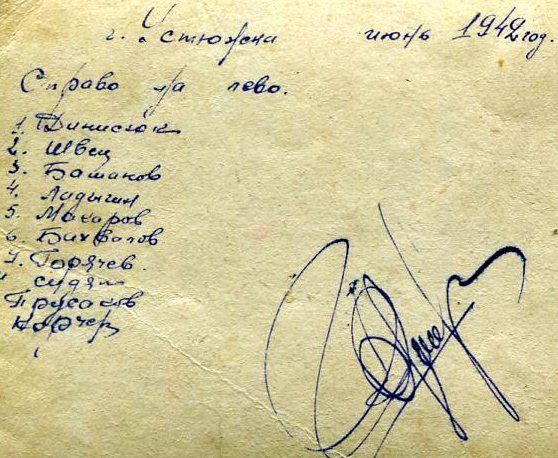 г. Устюжна июнь 1942 год.
Справо на лево.
1. Динисюк
2. Швец
3. Башаков
4. Ладыгин
5. Макаров
6. Бихвалов
7. Горячев.
сидят
Прусаков
Корчер